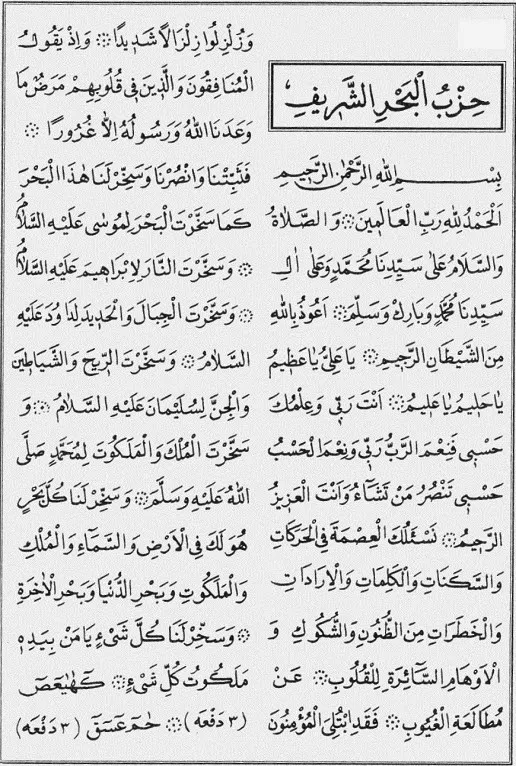 حِزْبُ الْبَحْرِ الشَّرِيفِ
بِسْمِ اللهِ الرَّحْمٰنِ الرَّحِيمِ
اَلْحَمْدُ لِلّٰهِ رَبِّ الْعَالَمِينَ ۞ وَالصَّلَاةُ
وَالسَّلَامُ عَلٰى سَيِّدِنَا مُحَمَّدٍ وَعَلٰى اٰلِ
سَيِّدِنَا مُحَمَّدٍ وَبَارِكْ وَسَلِّمْ ۞ اَعُوذُ بِاللهِ
مِنَ الشَّيْطَانِ الرَّجِيمِ ۞ يَا عَلِيُّ يَا عَظِيمُ
يَا حَلِيمُ يَا عَلِيمُ ۞ اَنْتَ رَبِّي وَعِلْمُكَ
حَسْبِي فَنِعْمَ الرَّبُّ رَبِّي وَنِعْمَ الْحَسْبُ
حَسْبِي تَنْصُرُ مَنْ تَشَاءُ وَاَنْتَ الْعَزِيزُ
الرَّحِيمُ ۞ نَسْئَلُكَ الْعِصْمَةَ فِي الْحَرَكَاتِ
وَالسَّكَنَاتِ وَالْكَلِمَاتِ وَالْاِرَادَاتِ
وَالْخَطَرَاتِ مِنَ الظُّنُونِ وَالشُّكُوكِ وَ
الْاَوْهَامِ السَّآئِرَةِ لِلْقُلُوبِ ۞ عَنْ
مُطَالَعَةِ الْغُيُوبِ ۞ فَقَدِ ابْتُلِيَ الْمُؤْمِنُونَ
وَزُلْزِلُوا زِلْزَالًا شَدِيدًا ۞ وَاِذْ يَقُولُ
الْمُنَافِقُونَ وَالَّذِينَ فِي قُلُوبِهِمْ مَرَضٌ مَا
وَعَدَنَا اللهُ وَرَسُولُهُ اِلَّا غُرُورًا ۞
فَثَبِّتْنَا وَانْصُرْنَا وَسَخِّرْ لَنَا هٰذَا الْبَحْرَ
كَمَا سَخَّرْتَ الْبَحْرَ لِمُوسٰى عَلَيْهِ السَّلَامُ
۞ وَسَخَّرْتَ النَّارَ لِاِبْرَاهِيمَ عَلَيْهِ السَّلَامُ
۞ وَسَخَّرْتَ الْجِبَالَ وَالْحَدِيدَ لِدَاوُدَ عَلَيْهِ
السَّلَامُ ۞ وَسَخَّرْتَ الرِّيحَ وَالشَّيَاطِينَ
وَالْجِنَّ لِسُلَيْمَانَ عَلَيْهِ السَّلَامُ ۞ وَ
سَخَّرْتَ الْمُلْكَ وَالْمَلَكُوتَ لِمُحَمَّدٍ صَلَّى
اللهُ عَلَيْهِ وَسَلَّمَ ۞ وَسَخِّرْ لَنَا كُلَّ بَحْرٍ
هُوَ لَكَ فِي الْاَرْضِ وَالسَّمَآءِ وَالْمُلْكِ
وَالْمَلَكُوتِ وَبَحْرِ الدُّنْيَا وَبَحْرِ الْاٰخِرَةِ
۞ وَسَخِّرْ لَنَا كُلَّ شَيْءٍ يَا مَنْ بِيَدِهِ
مَلَكُوتُ كُلِّ شَيْءٍ ۞ كٓهٰيٰعٓصٓ
(٣ دَفْعَه) ۞ حٰمٓ عٓسٓقٓ (٣ دَفْعَه)